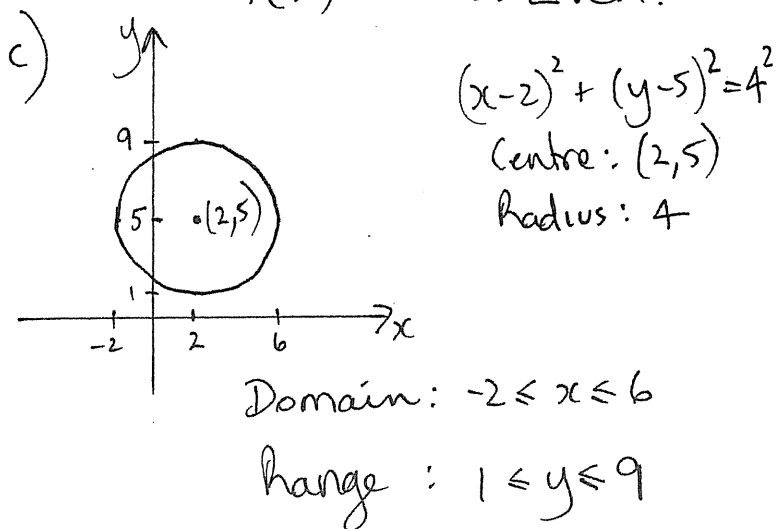 c)
y
9
5
(2,5)
1
-2 2 6
x
(x-2)² + (y-5)² = 4²
Centre: (2,5)
Radius: 4
Domain: -2 ≤ x ≤ 6
Range : 1 ≤ y ≤ 9